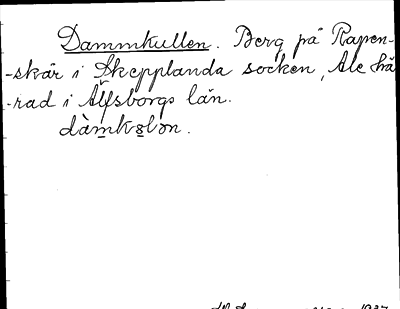 Dammkullen. Berg på Rapen-
-skär i Skepplanda socken, Ale hä
-rad i Älfsborgs län.
dàmkslən.
1937